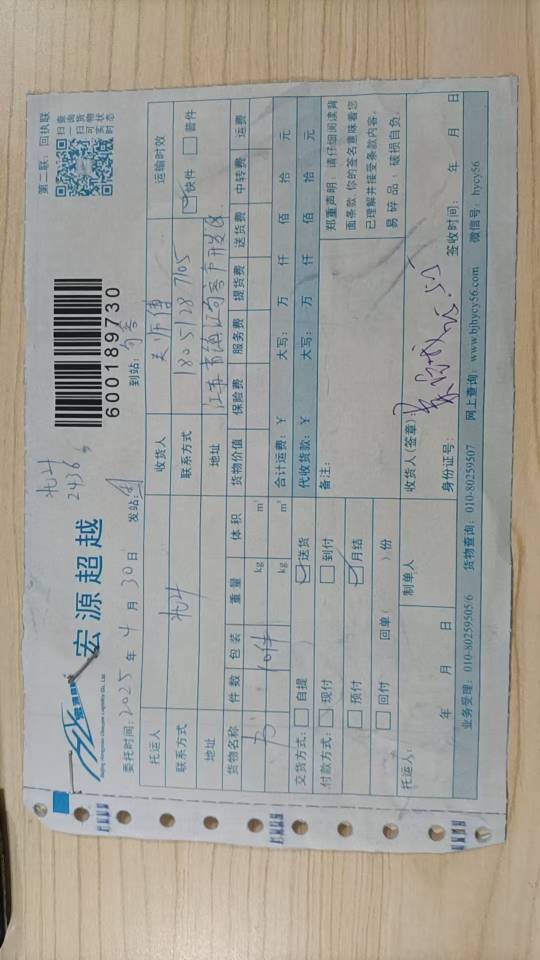 第二联：回执联
扫一扫可实
查询货物状态
宏源超越
Beijing Hongyuan Chaoyue Logistics Co., Ltd.
2436
600189730
委托时间：2025 年 4 月 30 日 发站： 到站：句容
托运人 收货人 运输时效
联系方式 联系方式 18051287105 快件 普件
地址 地址 江苏省镇江句容市开发区
货物名称 件数 包装 重量 体积 货物价值 保险费 服务费 提货费 送货费 中转费 运费
10件 kg m³
kg m³ 合计运费：¥ 大写： 万 仟 佰 拾 元
交货方式： 自提 送货 代收货款：¥ 大写： 万 仟 佰 拾 元
付款方式： 现付 到付 备注：
预付 月结
回付 回单（ ）份
郑重声明：请仔细阅读背
面条款，你的签名意味着您
已理解并接受条款内容。
易碎品：破损自负。
托运人： 制单人 收货人(签章)：
年 月 日 身份证号： 签收时间： 年 月 日
业务受理：010-80259505/6 货物查询：010-80259507 网上查询：www.bjhycy56.com 微信号：hycy56